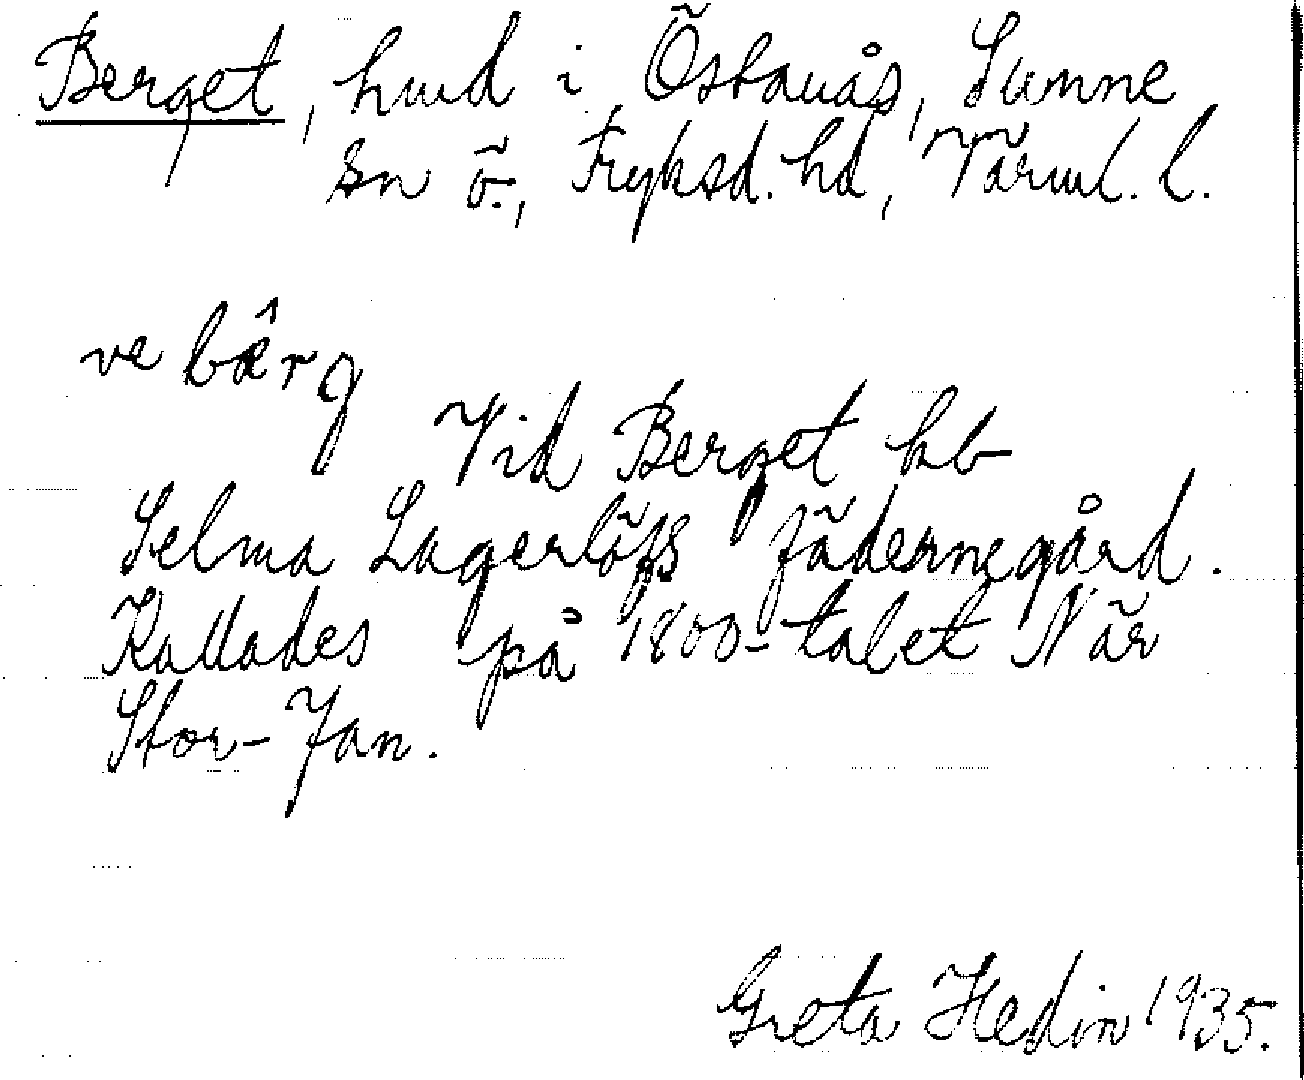 Berget, hmd i Östanås, Sunne
sn ö., Fryksd. hd, Värml. l.
ve bærg
Vid Berget hb
Selma Lagerlöfs fädernegård.
Kallades på 1800-talet När
Stor-Jan.
Greta Hedin 1935.